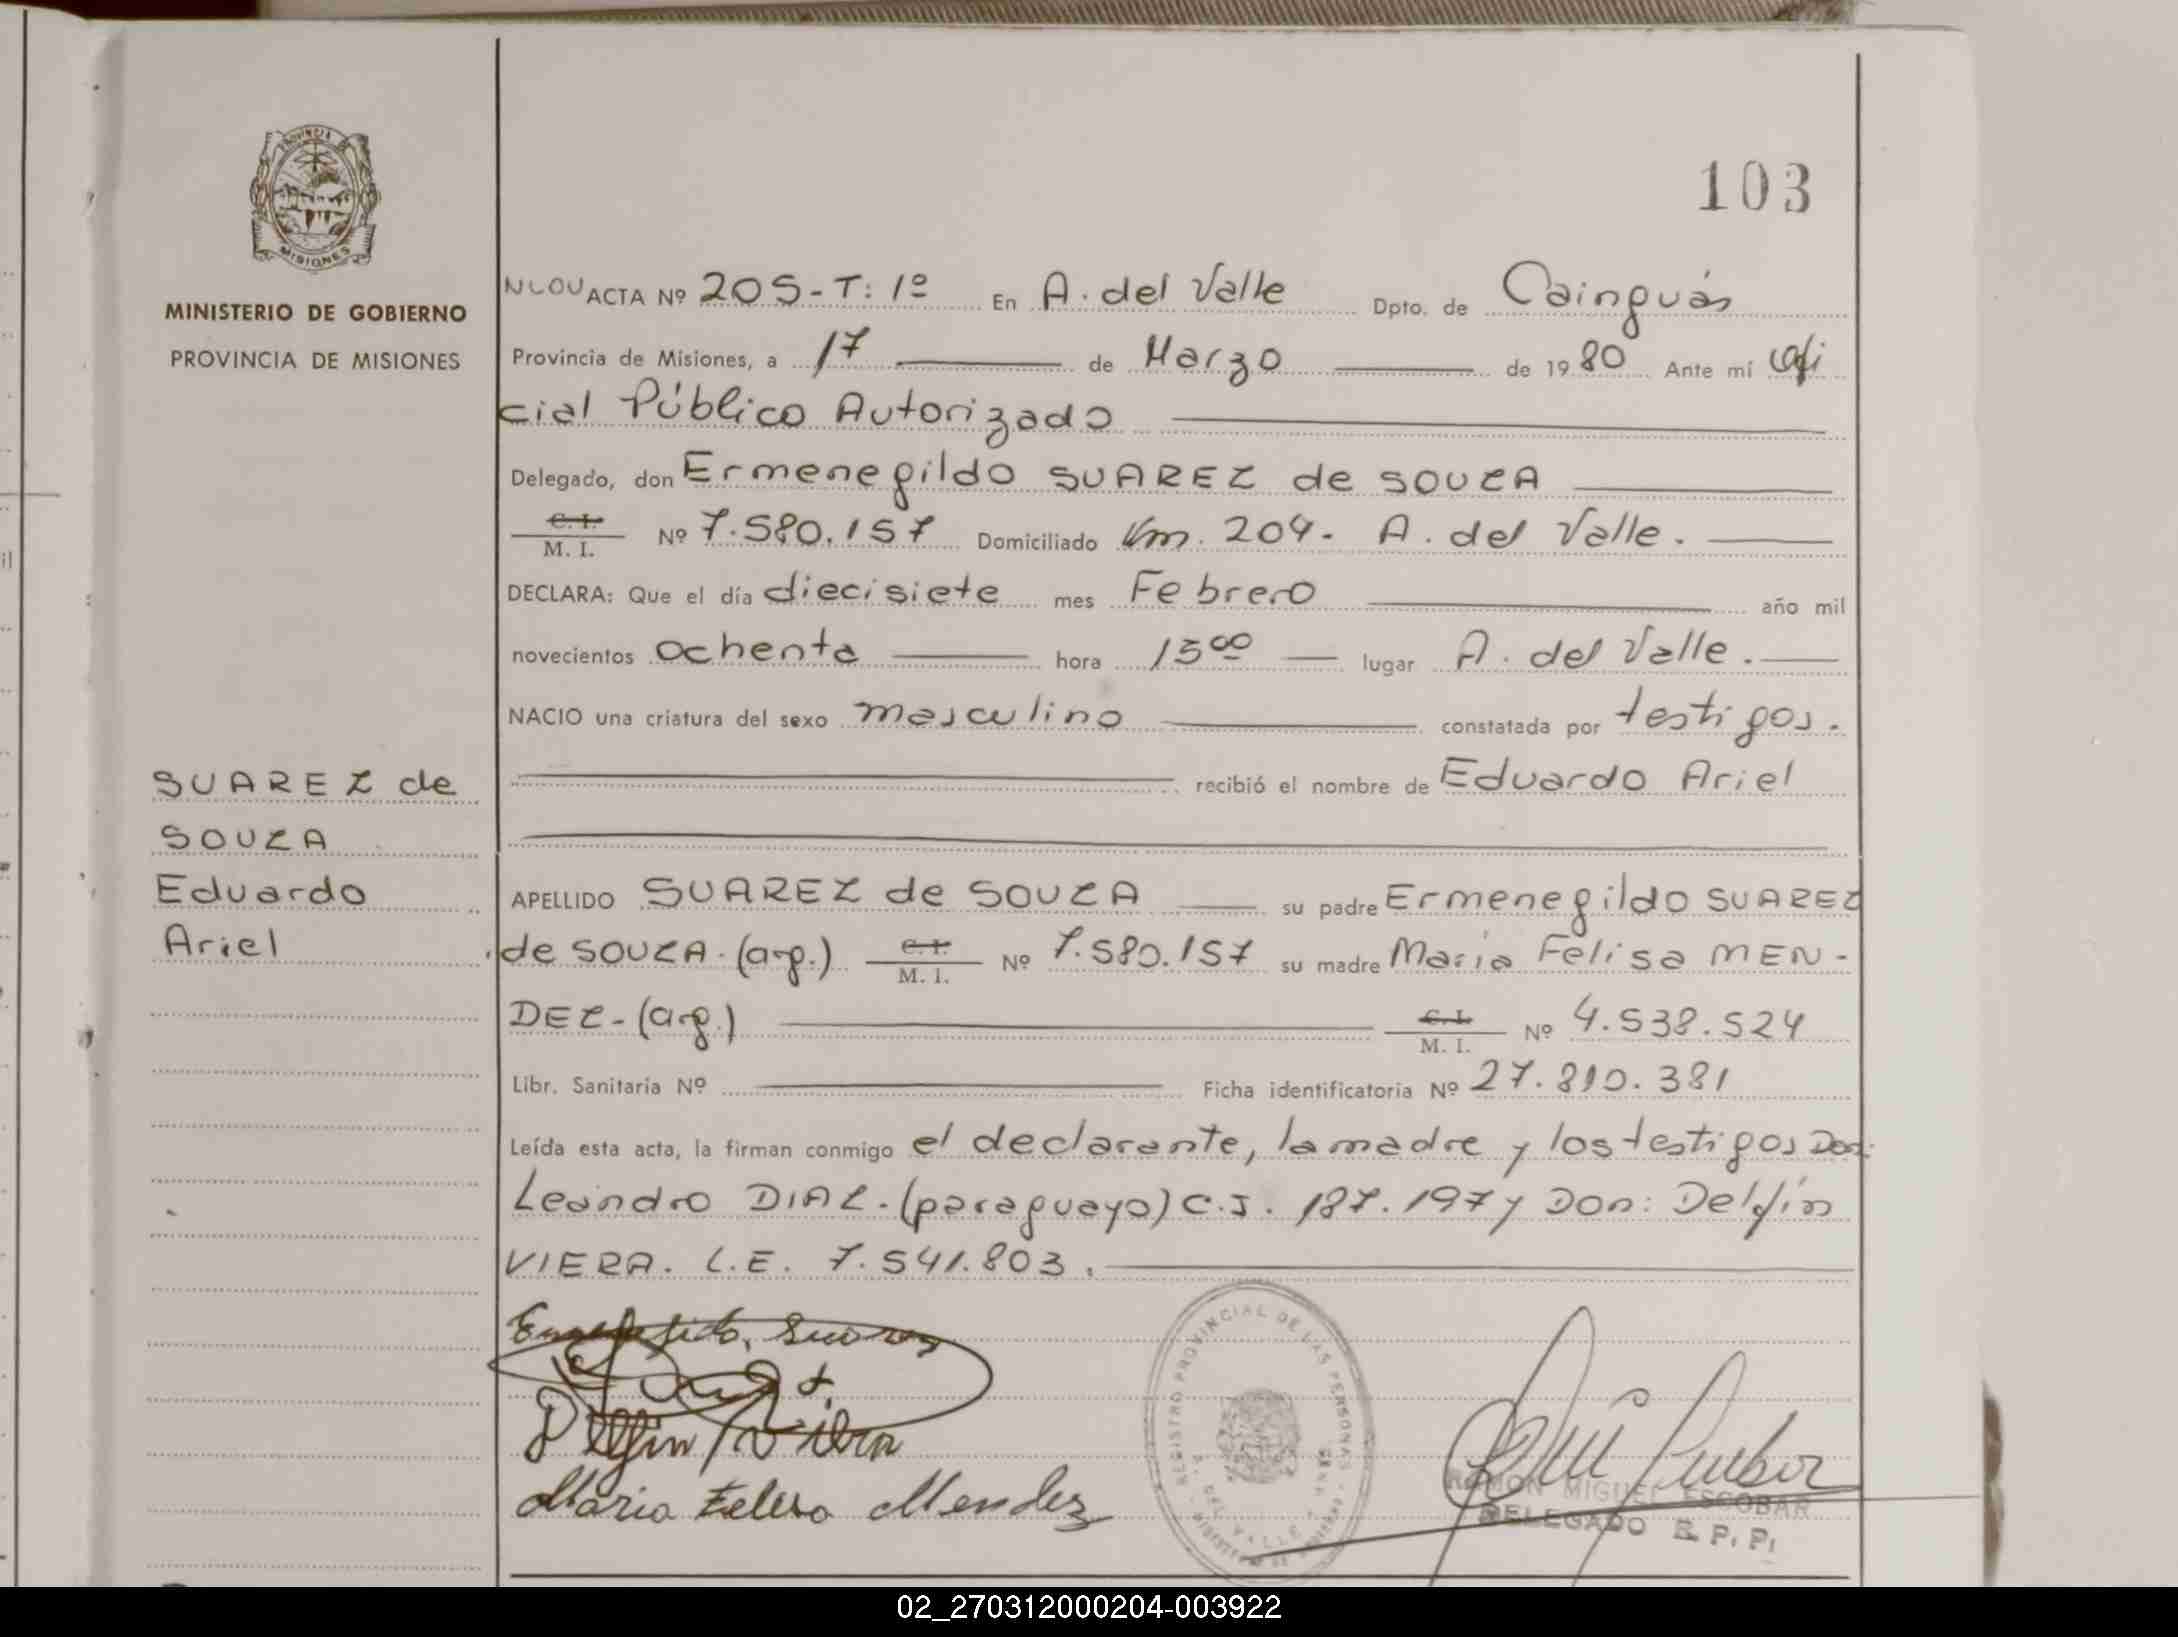 PROVINCIA
MISIONES
MINISTERIO DE GOBIERNO
PROVINCIA DE MISIONES
103
ACTA Nº 205-T: 1º En A. del Valle Dpto. de Cainguás
Provincia de Misiones, a 17 de Marzo de 1980 Ante mí Ofi
cial Público Autorizado
Delegado, don Ermenegildo SUAREZ de SOUZA
C. I. / M. I. Nº 7.580.157 Domiciliado Km. 204. A. del Valle.
DECLARA: Que el día diecisiete mes Febrero año mil
novecientos ochenta hora 15⁰⁰ lugar A. del Valle.
NACIO una criatura del sexo masculino constatada por testigos.
recibió el nombre de Eduardo Ariel
SUAREZ de
SOUZA
Eduardo
Ariel
APELLIDO SUAREZ de SOUZA su padre Ermenegildo SUAREZ
de SOUZA. (arg.) C. I. / M. I. Nº 7.580.157 su madre Maria Felisa MEN-
DEZ- (arg.) C. I. / M. I. Nº 4.538.524
Libr. Sanitaria Nº Ficha identificatoria Nº 27.810.381
Leída esta acta, la firman conmigo el declarante, la madre y los testigos Don:
Leandro DIAZ. (paraguayo) C.I. 187.197 y Don: Delfín
VIERA. L.E. 7.541.803.
Delfin
Maria Felisa Mendez
REGISTRO PROVINCIAL DE LAS PERSONAS
A. DEL VALLE
RAMON MIGUEL ESCOBAR
DELEGADO R. P. P.
02_270312000204-003922